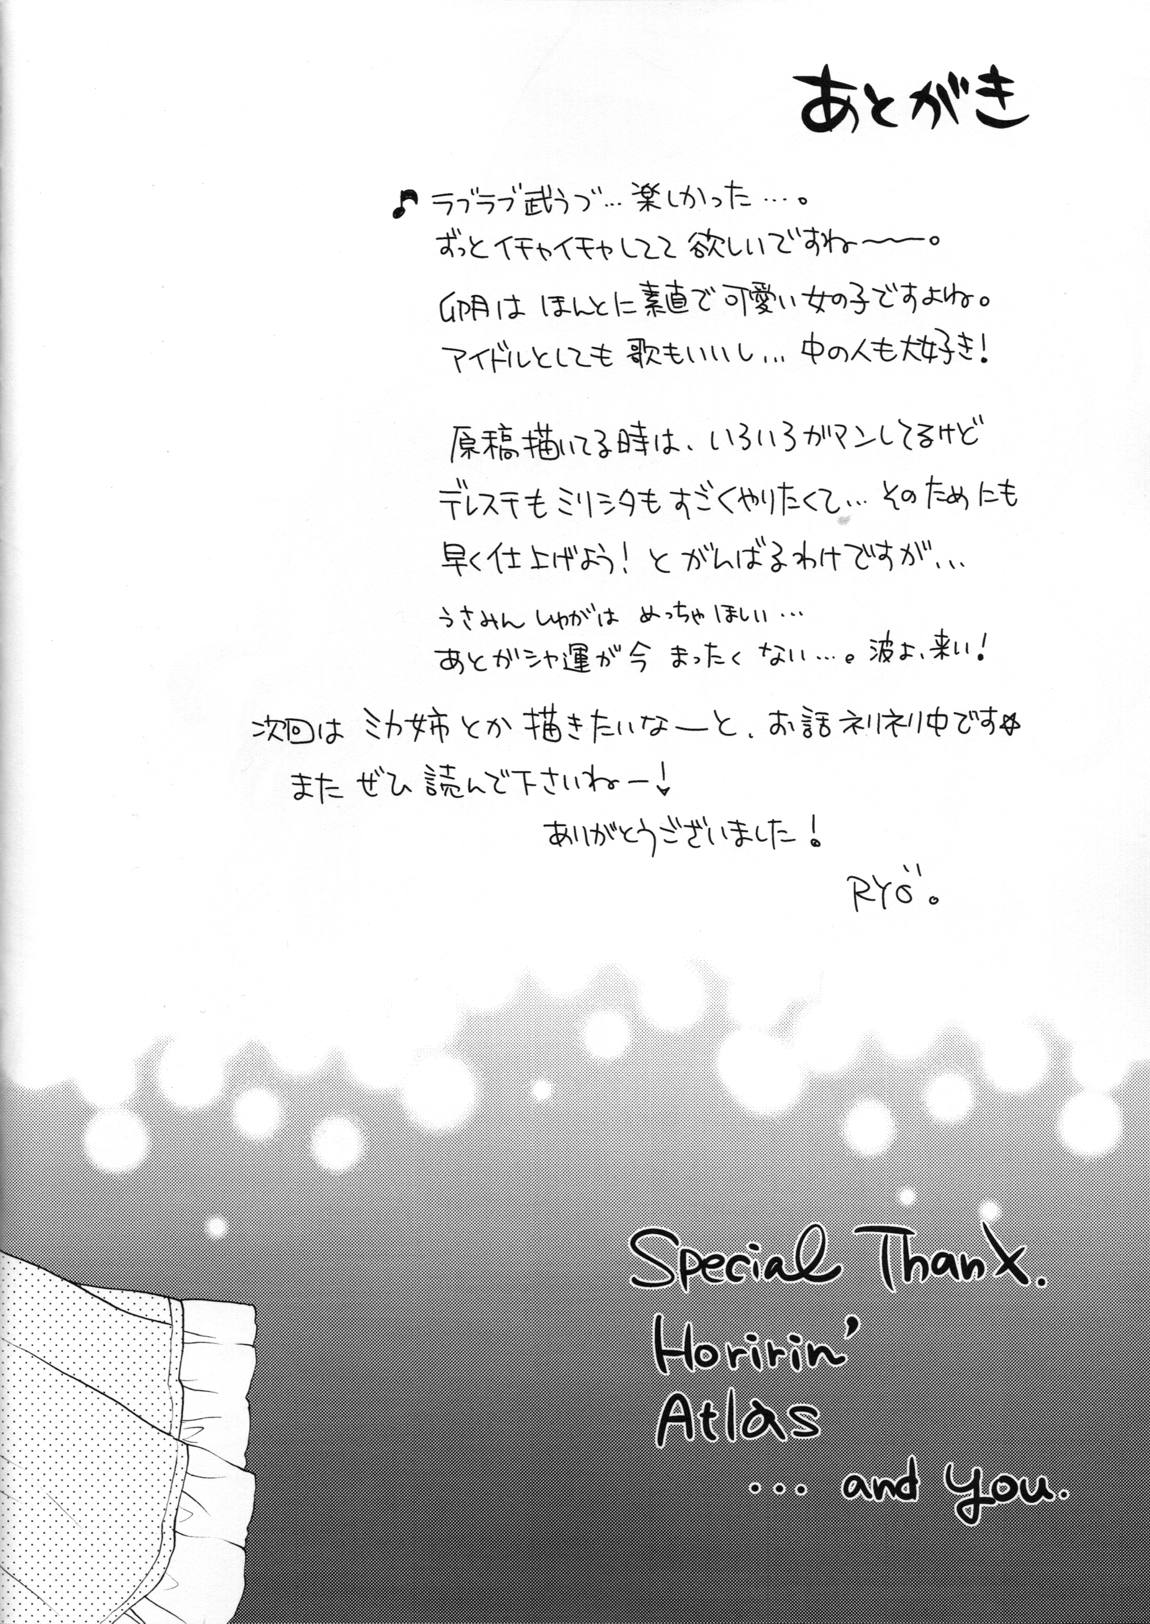 あとがき
♪ ラブラブ武うづ…楽しかった…。
ずっとイチャイチャしてて欲しいですね〜〜。
卯月は ほんとに素直で可愛い女の子ですよね。
アイドルとしても 歌もいいし…中の人も大好き!
原稿描いてる時は、いろいろガマンしてるけど
デレステもミリシタもすごくやりたくて…そのためにも
早く仕上げよう!とがんばるわけですが…
うさみん しゅがは めっちゃほしい…
あとガシャ運が今 まったくない…。波よ、来い!
次回は ミカ姉とか描きたいなーと、お話ネリネリ中です☆
また ぜひ 読んで下さいねー!
ありがとうございました!
RYÖ。
Special ThanX.
Horirin'
Atlas
... and you.